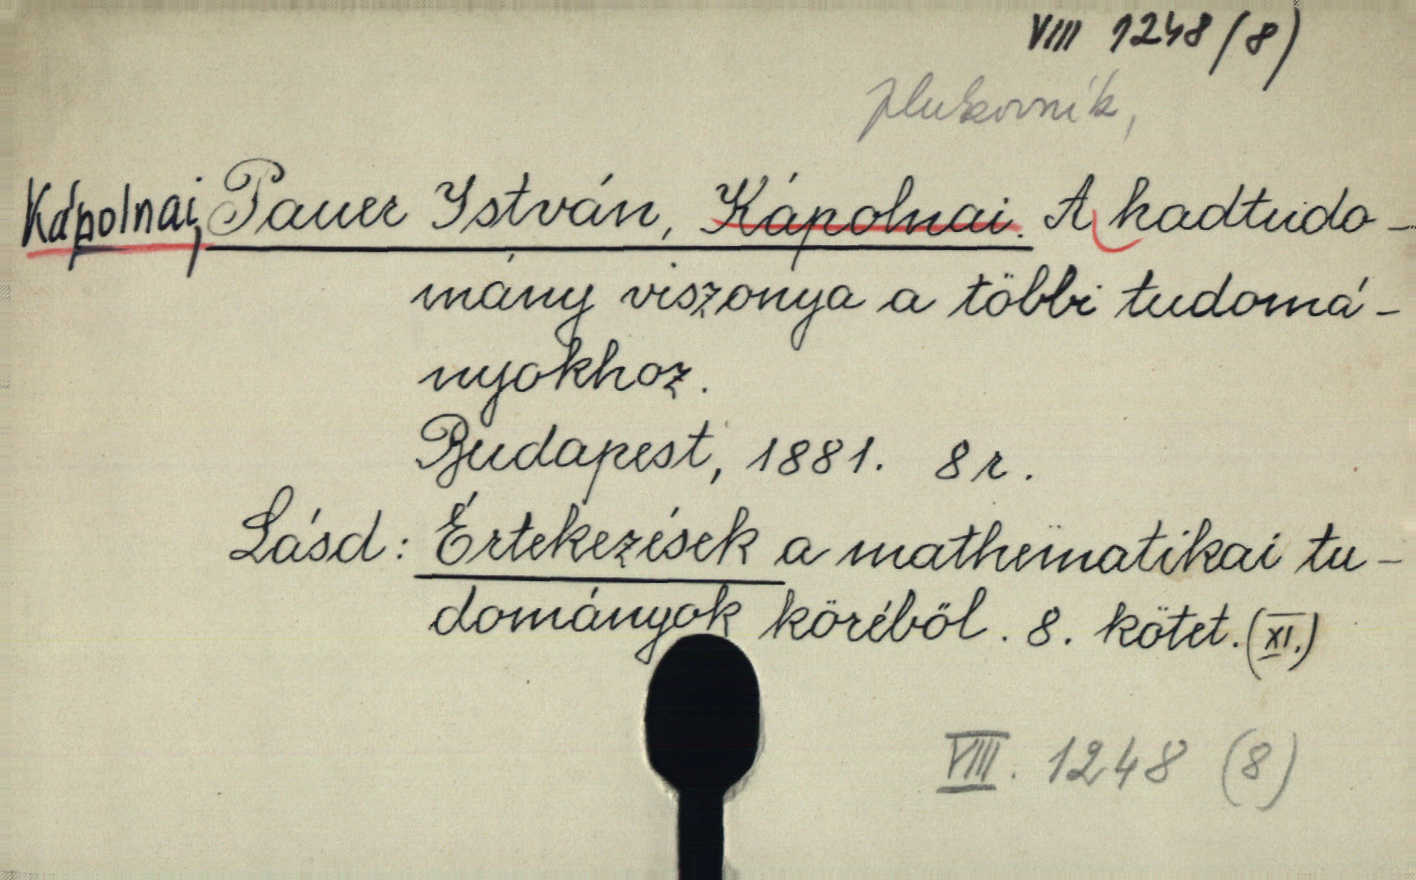 VIII 1248 (8)
plukovník,
Kápolnai, Pauer István, Kápolnai. A hadtudo-
mány viszonya a többi tudomá-
nyokhoz.
Budapest, 1881. 8 r.
Lásd: Értekezések a mathematikai tu-
dományok köréből. 8. kötet. (XI.)
VIII. 1248 (8)